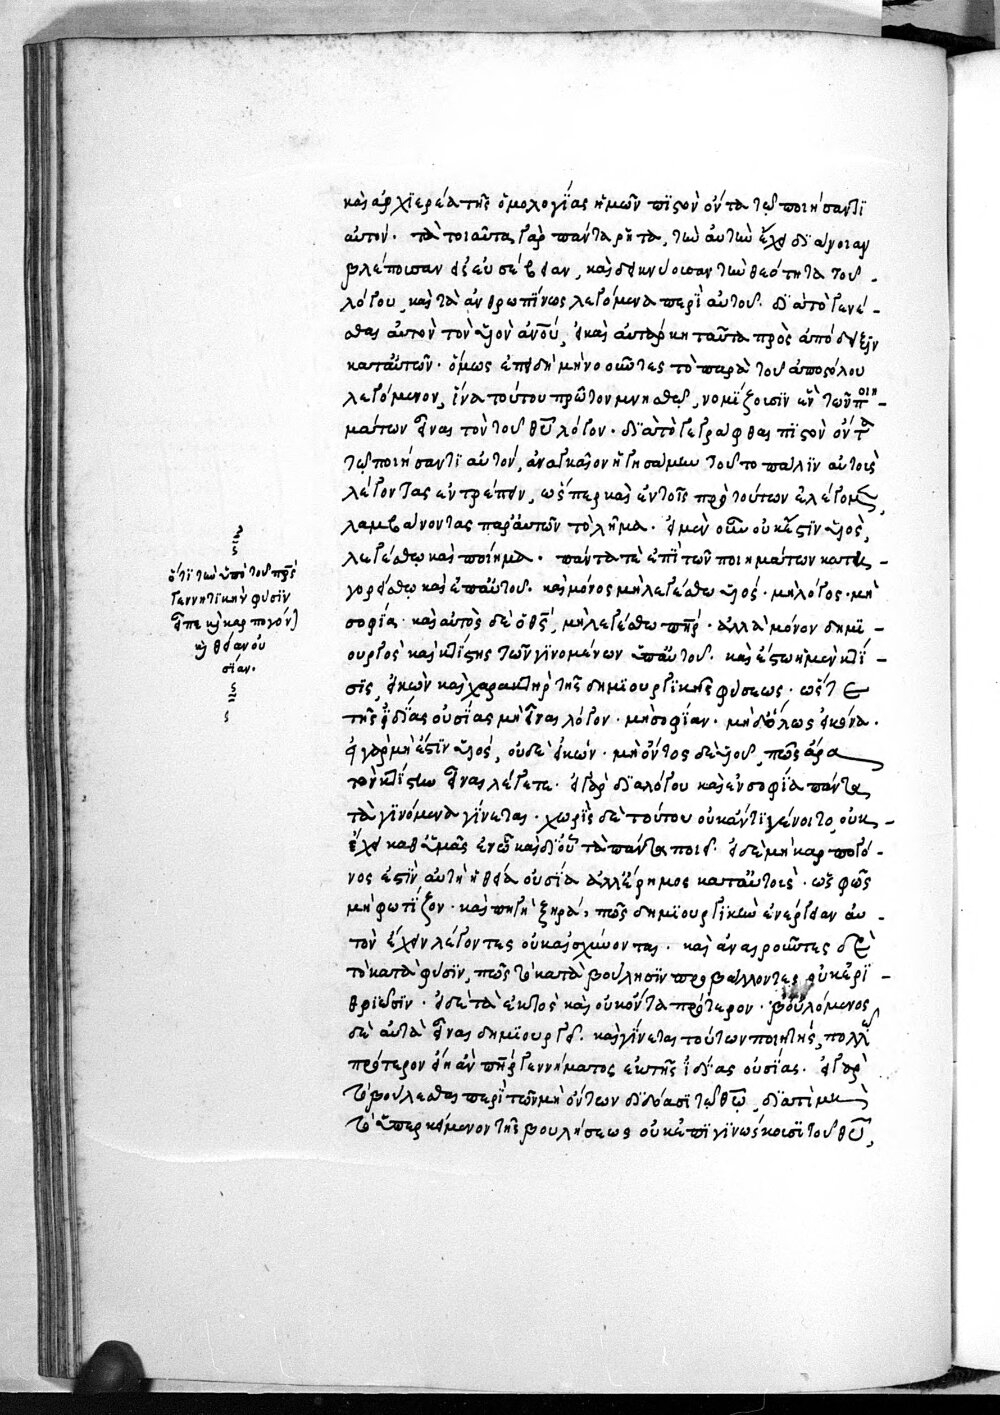 καὶ ἀρχϊερέα τῆς ὁμολογΐας ἡμῶν πϊστὸν ὄντα τῷ ποιήσαντϊ
αὐτόν. τὰ τοιαῦτα γὰρ πάντα ῥητὰ, τὴν ἀυτὴν ἔχει διάνοιαν
βλέπουσαν εἰς εὐσέβειαν, καὶ δεικνύουσαν τὴν θεότητα τοῦ
λόγου, καὶ τὰ ἀνθρωπΐνως λεγόμενα περὶ αὐτοῦ. δϊὰ τὸ γενέ-
σθαι αὐτὸν τὸν ὑϊὸν ἀνοῦ, εἰ καὶ αὐτάρκη ταῦτα πρὸς ἀπόδειξϊν
κατ αὐτῶν. ὅμως ἐπειδὴ μὴ νοοῦντες τὸ παρὰ τοῦ ἀποστόλου
λεγόμενον, ἵνα τούτου πρῶτον μνησθῶ, νομΐζουσϊν ἓν τῶν ποιη-
μάτων εἶναι τὸν τοῦ θῦ λόγον. δϊὰ τὸ γεγράφθαι πϊστὸν ὄντα
τῷ ποιήσαντϊ αὐτόν, ἀναγκαῖον ἡγησάμην τοῦτο πάλϊν αὐτοὺς
λέγοντας ἐντρέπειν, ὥσπερ καὶ ἐν τοῖς πρὸ τούτων ἐλέγομεν,
λαμβάνοντας παρ' ἀυτῶν τὸ λῆμμα. εἰ μὲν οὖν οὐκ ἔστϊν ὑϊὸς,
λεγέσθω καὶ ποίημα. πάντα τὲ ἐπὶ τῶν ποιημάτων κατη-
γορείσθω καὶ ἐπ αὐτοῦ. καὶ μόνος μὴ λεγέσθω ὑϊός. μὴ λόγος. μὴ
σοφία. καὶ αὐτὸς δὲ ὁ θς, μὴ λεγέσθω πηρ. ἀλλὰ μόνον δημϊ-
ουργὸς καὶ κτίστης τῶν γϊνομένων ὑπ' αὐτοῦ. καὶ ἔστω ἡ μὲν κτί-
σϊς, εἰκὼν καὶ χαρακτὴρ τῆς δημϊουργϊκῆς φύσεως. ὥστε
τῆς ϊδΐας οὐσΐας μὴ εἶναι λόγον. μὴ σοφΐαν. μὴ δ' ὅλως εἰκόνα.
εἰ γὰρ μὴ ἔστϊν ὑϊὸς, οὐδὲ εἰκών. μὴ ὄντος δὲ ὑϊοῦ, πῶς ἄρα
τὸν κτίστην εἶναι λέγετε. εἰ γὰρ δϊὰ λόγου καὶ ἐν σοφΐα πάντα
τὰ γϊνόμενα γίνεται. χωρὶς δὲ τούτου οὐκ ἄν τϊ γένοιτο, οὐκ
ἔχει καθ ὑμᾶς ἐν ᾧ καὶ δϊ οὗ τὰ πάντα ποιεῖ. εἰ δὲ μὴ καρπογό-
νος ἐστϊν αὐτὴ ἡ θεία οὐσία ἀλλ' ἔρημος κατ αὐτοὺς. ὡς φῶς
μὴ φωτίζον. καὶ πηγὴ ξηρὰ, πῶς δημϊουργϊκὴν ἐνέργειαν αὐ-
τὸν ἔχειν λέγοντες οὐκ αἰσχύνονται. καὶ ἀναιροῦντες δὲ
τὸ κατὰ φύσϊν, πῶς τὸ κατὰ βούλησϊν προβάλλοντες οὐκ ἐρϋ-
θρϊῶσϊν. εἰ δὲ τὰ ἐκτὸς καὶ οὐκ ὄντα πρότερον. βουλόμενος
δὲ αὐτὰ εἶναι δημϊουργεῖ. καὶ γΐνεται τούτων ποιητὴς, πολλῷ
πρότερον εἴη ἂν πηρ γεννήματος ἐκ τῆς ϊδΐας οὐσΐας. εἰ γὰρ
τὸ βούλεσθαι περὶ τῶν μὴ ὄντων δϊδόασϊ τῷ θῶ, δϊατί μὴ
τὸ ὑπερκείμενον τῆς βουλήσεως οὐκ ἐπϊγϊνώσκουσϊ τοῦ θῦ,
ὅτϊ τὴν ὑπὸ τοῦ πρς
γεννητϊκὴν φύσϊν
εἶπε καὶ καρπογόνον
καὶ θείαν οὐ
σΐαν.